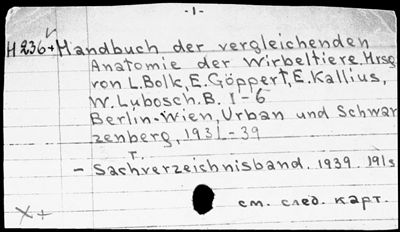 -1-
H 236+ Handbuch der vergleichenden
Anatomie der Wirbeltiere. Hrsg.
von L. Bolk, E. Göppert, E. Kallius,
W. Lubosch. B. 1-6
Berlin-Wien, Urban und Schwar
zenberg, 1931-39
T.
- Sachverzeichnisband. 1939. 191s
см. след. карт.
X+